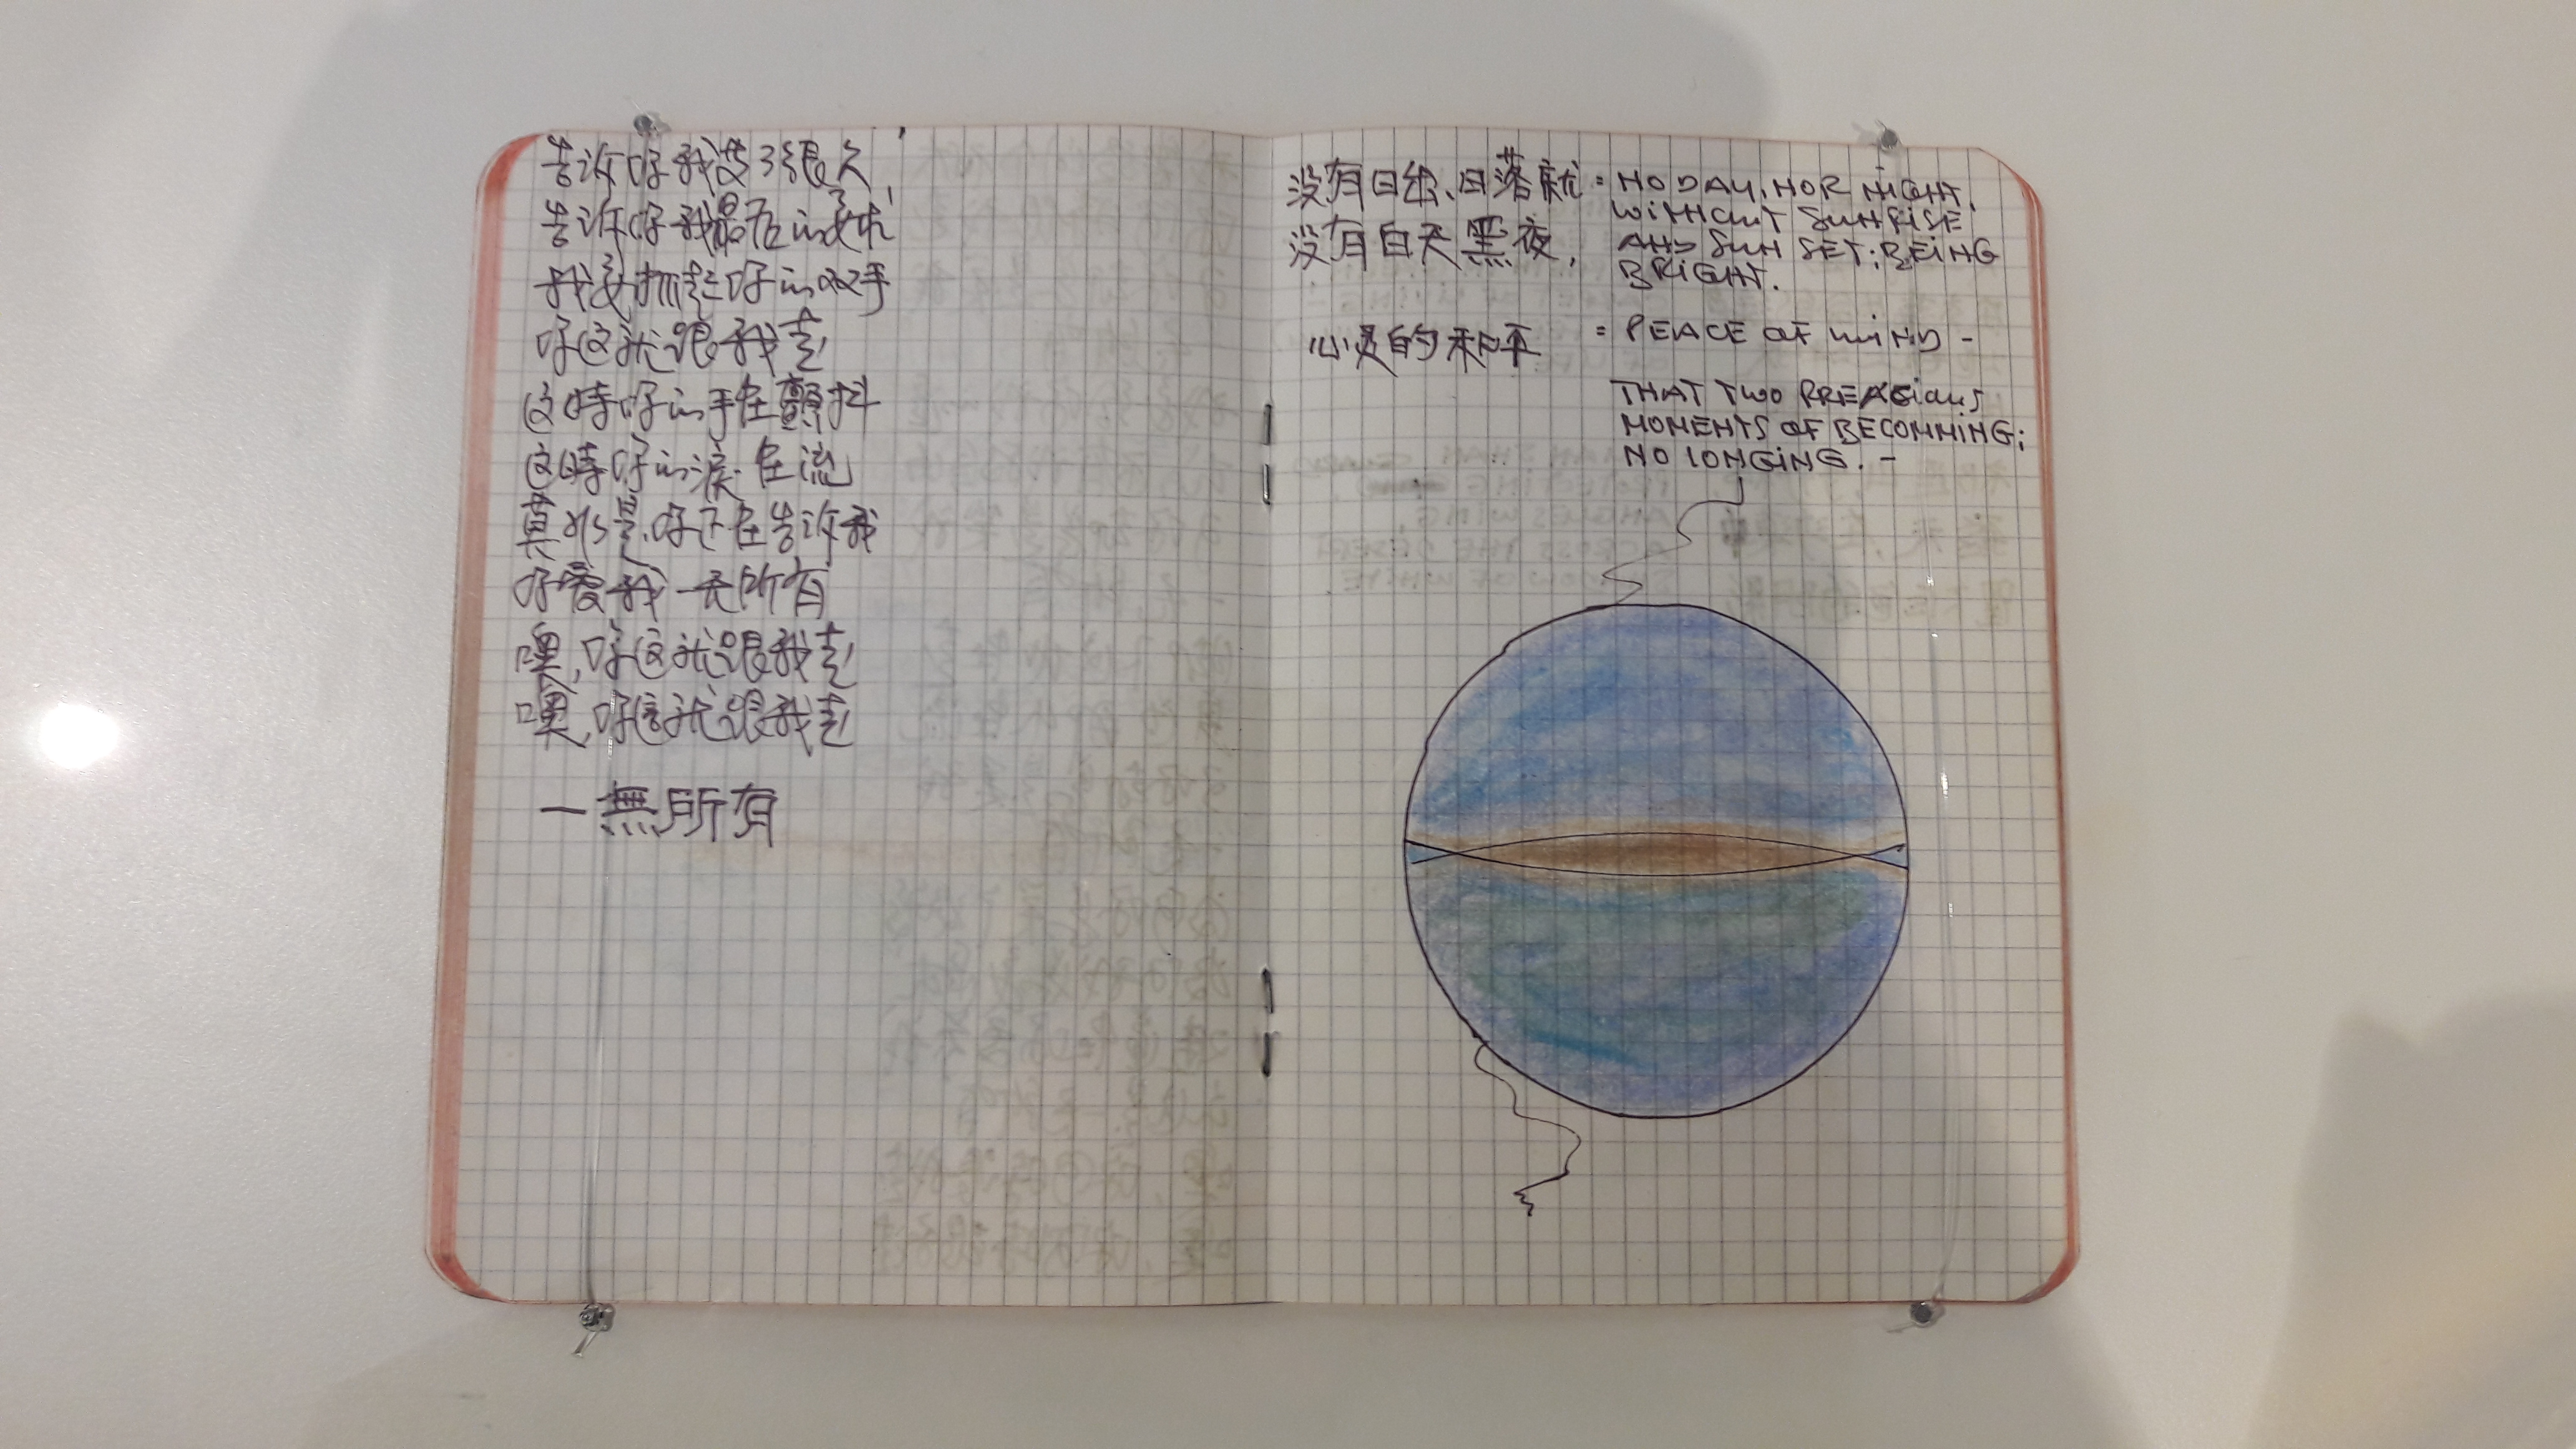 告诉你我等了很久,
告诉你我最后的要求
我要抓起你的双手
你这就跟我走
这時你的手在顫抖
这時你的淚在流
莫非是你正在告诉我
你愛我一无所有
噢,你这就跟我走
噢,你这就跟我走
一無所有
没有日出、日落就
没有白天黑夜,
= NO DAY, NOR NIGHT,
WITHOUT SUNRISE
AND SUN SET; BEING
BRIGHT.
心灵的和平 = PEACE OF MIND -
THAT TWO
MOMENTS OF BECOMMING;
NO LONGING. -